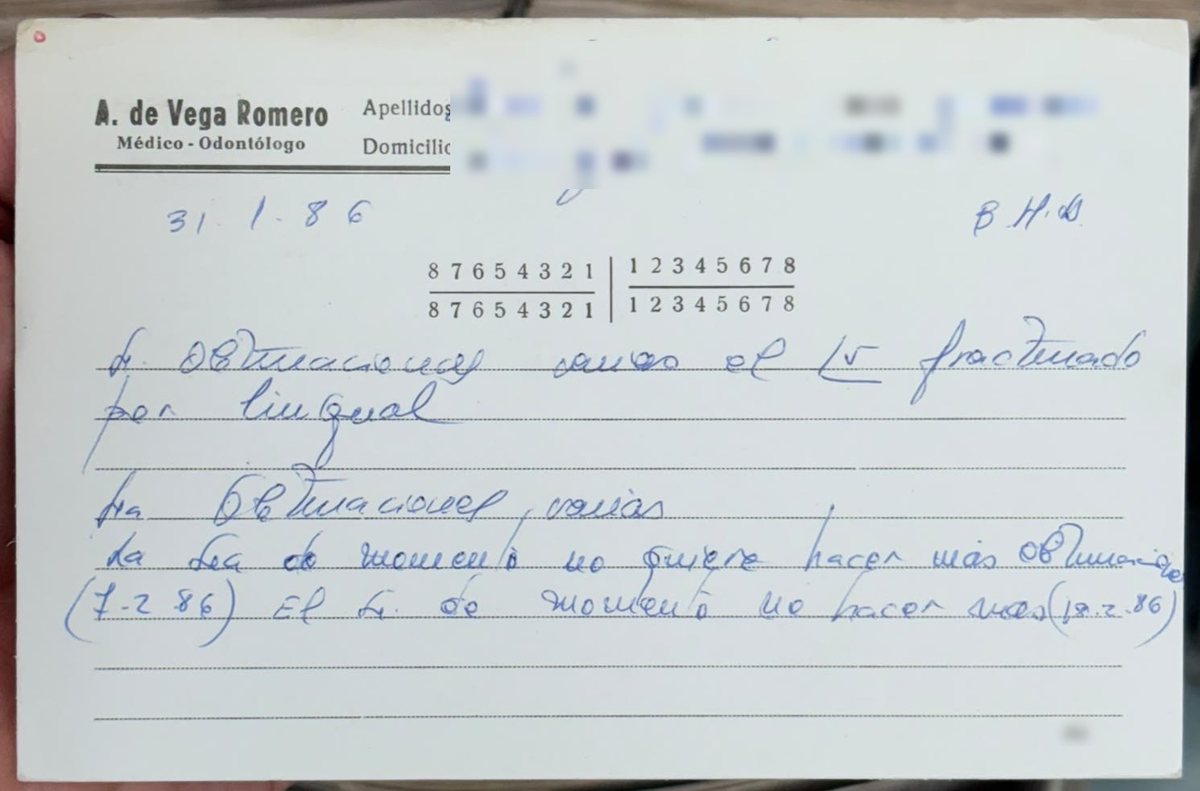 A. de Vega Romero
Médico - Odontólogo
Apellidos
Domicilio
31.1.86
B.H.D.
8 7 6 5 4 3 2 1 | 1 2 3 4 5 6 7 8
8 7 6 5 4 3 2 1 | 1 2 3 4 5 6 7 8
Sr. Obturaciones varias el fracturado
por lingual
Sra Obturaciones varias
La Sra de momento no quiere hacer más obturaciones
(7-2 86) El Sr. de momento no hacer mas (18.2.86)